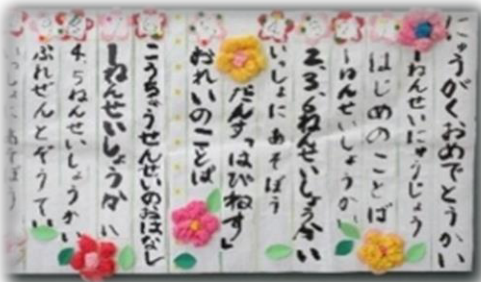 にゅうがくおめでとうかい
1ねんせいにゅうじょう
はじめのことば
1ねんせいしょうかい
2,3,6ねんせいしょうかい
いっしょにあそぼう
だんす「はぴねす」
おれいのことば
こうちょうせんせいのおはなし
1ねんせいしょうかい
4,5ねんせいしょうかい
ぷれぜんとぞうてい
いっしょにあそぼう